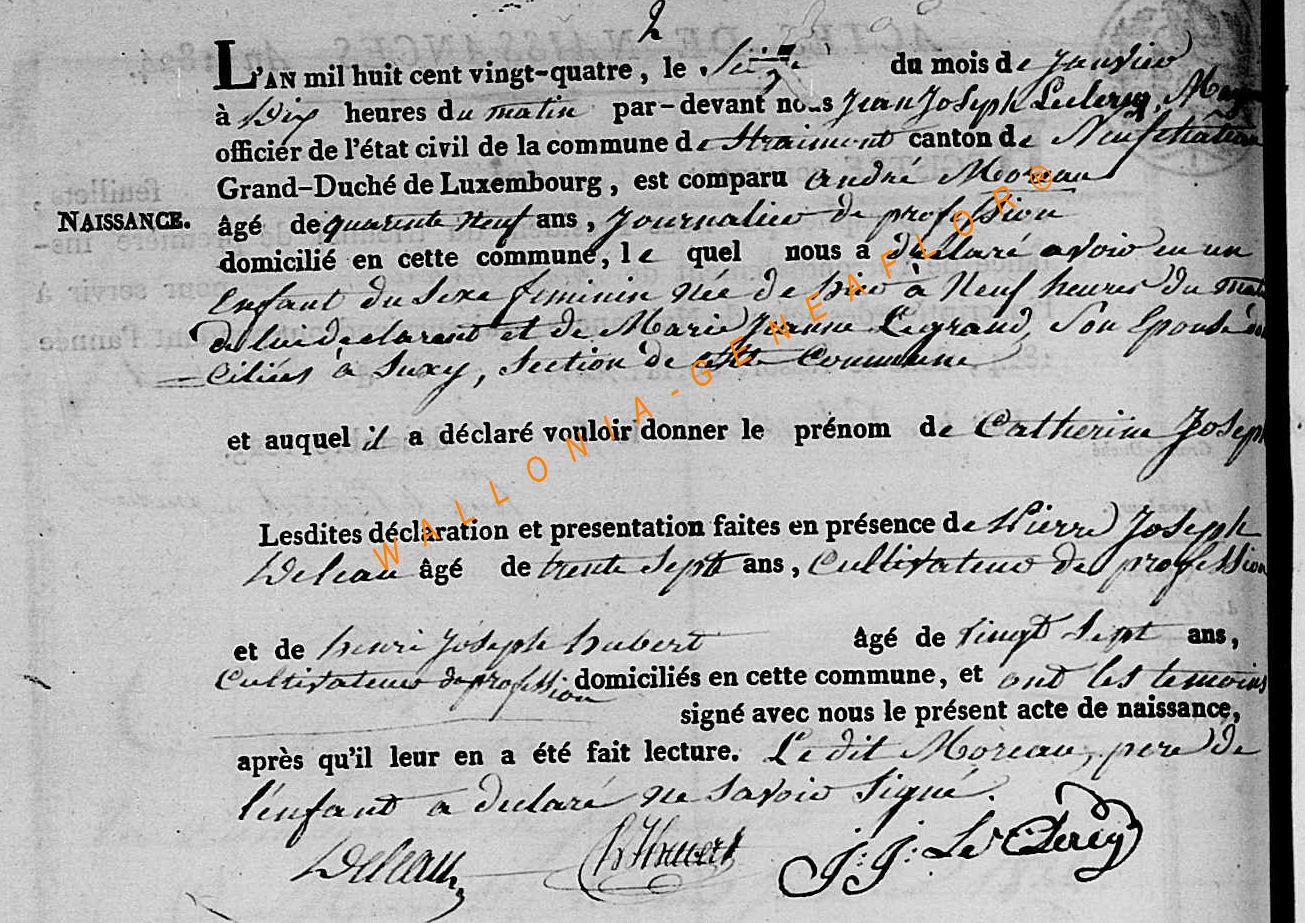 2
L'AN mil huit cent vingt-quatre, le seize du mois de Janvier
à Dix heures du matin par-devant nous Jean Joseph Leclercq,
officier de l'état civil de la commune de Straimont canton de Neufchateau
Grand-Duché de Luxembourg, est comparu André Moreau
NAISSANCE.
âgé de quarente Neuf ans, Journalier de profession
domicilié en cette commune, le quel nous a déclaré avoir eu un
Enfant du Sexe feminin née de hier à Neuf heures du mat
de lui déclarent et de Marie Jeanne Legrand, Son Epouse do
ciliés à Suxy, Section de cette Commune
et auquel il a déclaré vouloir donner le prénom de Catherine Joseph
Lesdites déclaration et presentation faites en présence de Pierre Joseph
Deleau âgé de trente Sept ans, Cultivateur de profession
et de henri Joseph hubert âgé de Vingt Sept ans,
Cultivateur de profession domiciliés en cette commune, et ont les temoins
signé avec nous le présent acte de naissance,
après qu'il leur en a été fait lecture. Le dit Moreau, pere de
l'enfant a declaré ne Savoir Signé.
Deleau J: J: Le Clercq
WALLONIA-GENEAFLOR®